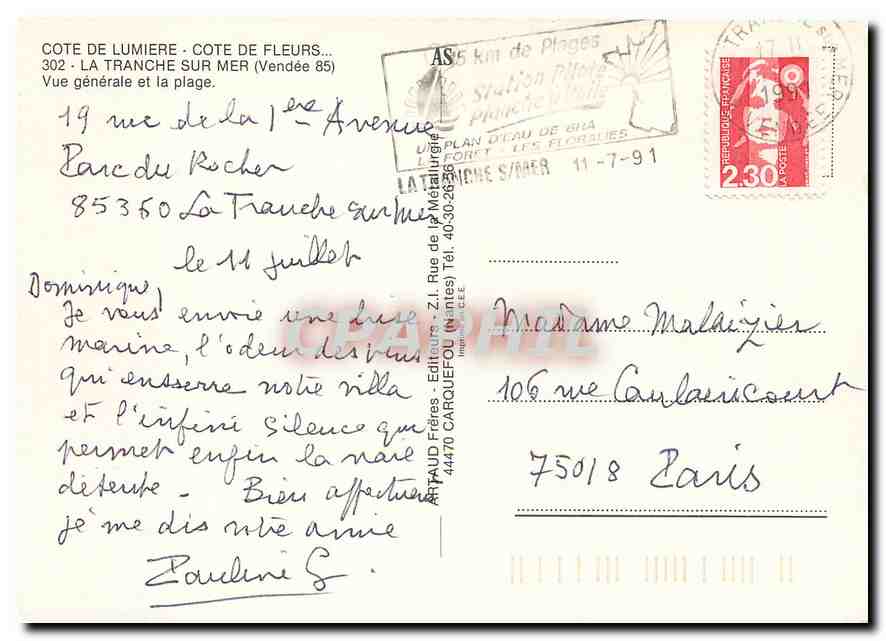 COTE DE LUMIERE - COTE DE FLEURS...
302 - LA TRANCHE SUR MER (Vendée 85)
Vue générale et la plage.
19 rue de la 1ère Avenue
Parc du Rocher
85360 La Tranche sur mer
le 11 juillet
Dominique,
Je vous envoie une brise
marine, l'odeur des pins
qui enserre notre villa
et l'infini silence qui
permet enfin la vraie
détente - Bien affectueus
je me dis votre amie
Pauline G.
AS
35 km de Plages
Station Pilote
Planche à Voile
UN PLAN D'EAU DE 6HA
LA FORET - LES FLORALIES
LA TRANCHE S/MER 11-7-91
ARTAUD Frères - Editeurs - Z.I. Rue de la Métallurgie
44470 CARQUEFOU (Nantes) Tél. 40-30-26-56
Imprimé en C.E.E.
17 H
1991
REPUBLIQUE FRANÇAISE
LA POSTE
2.30
Madame Malaizier
106 rue Caulaincourt
75018 Paris
CPAPHIL